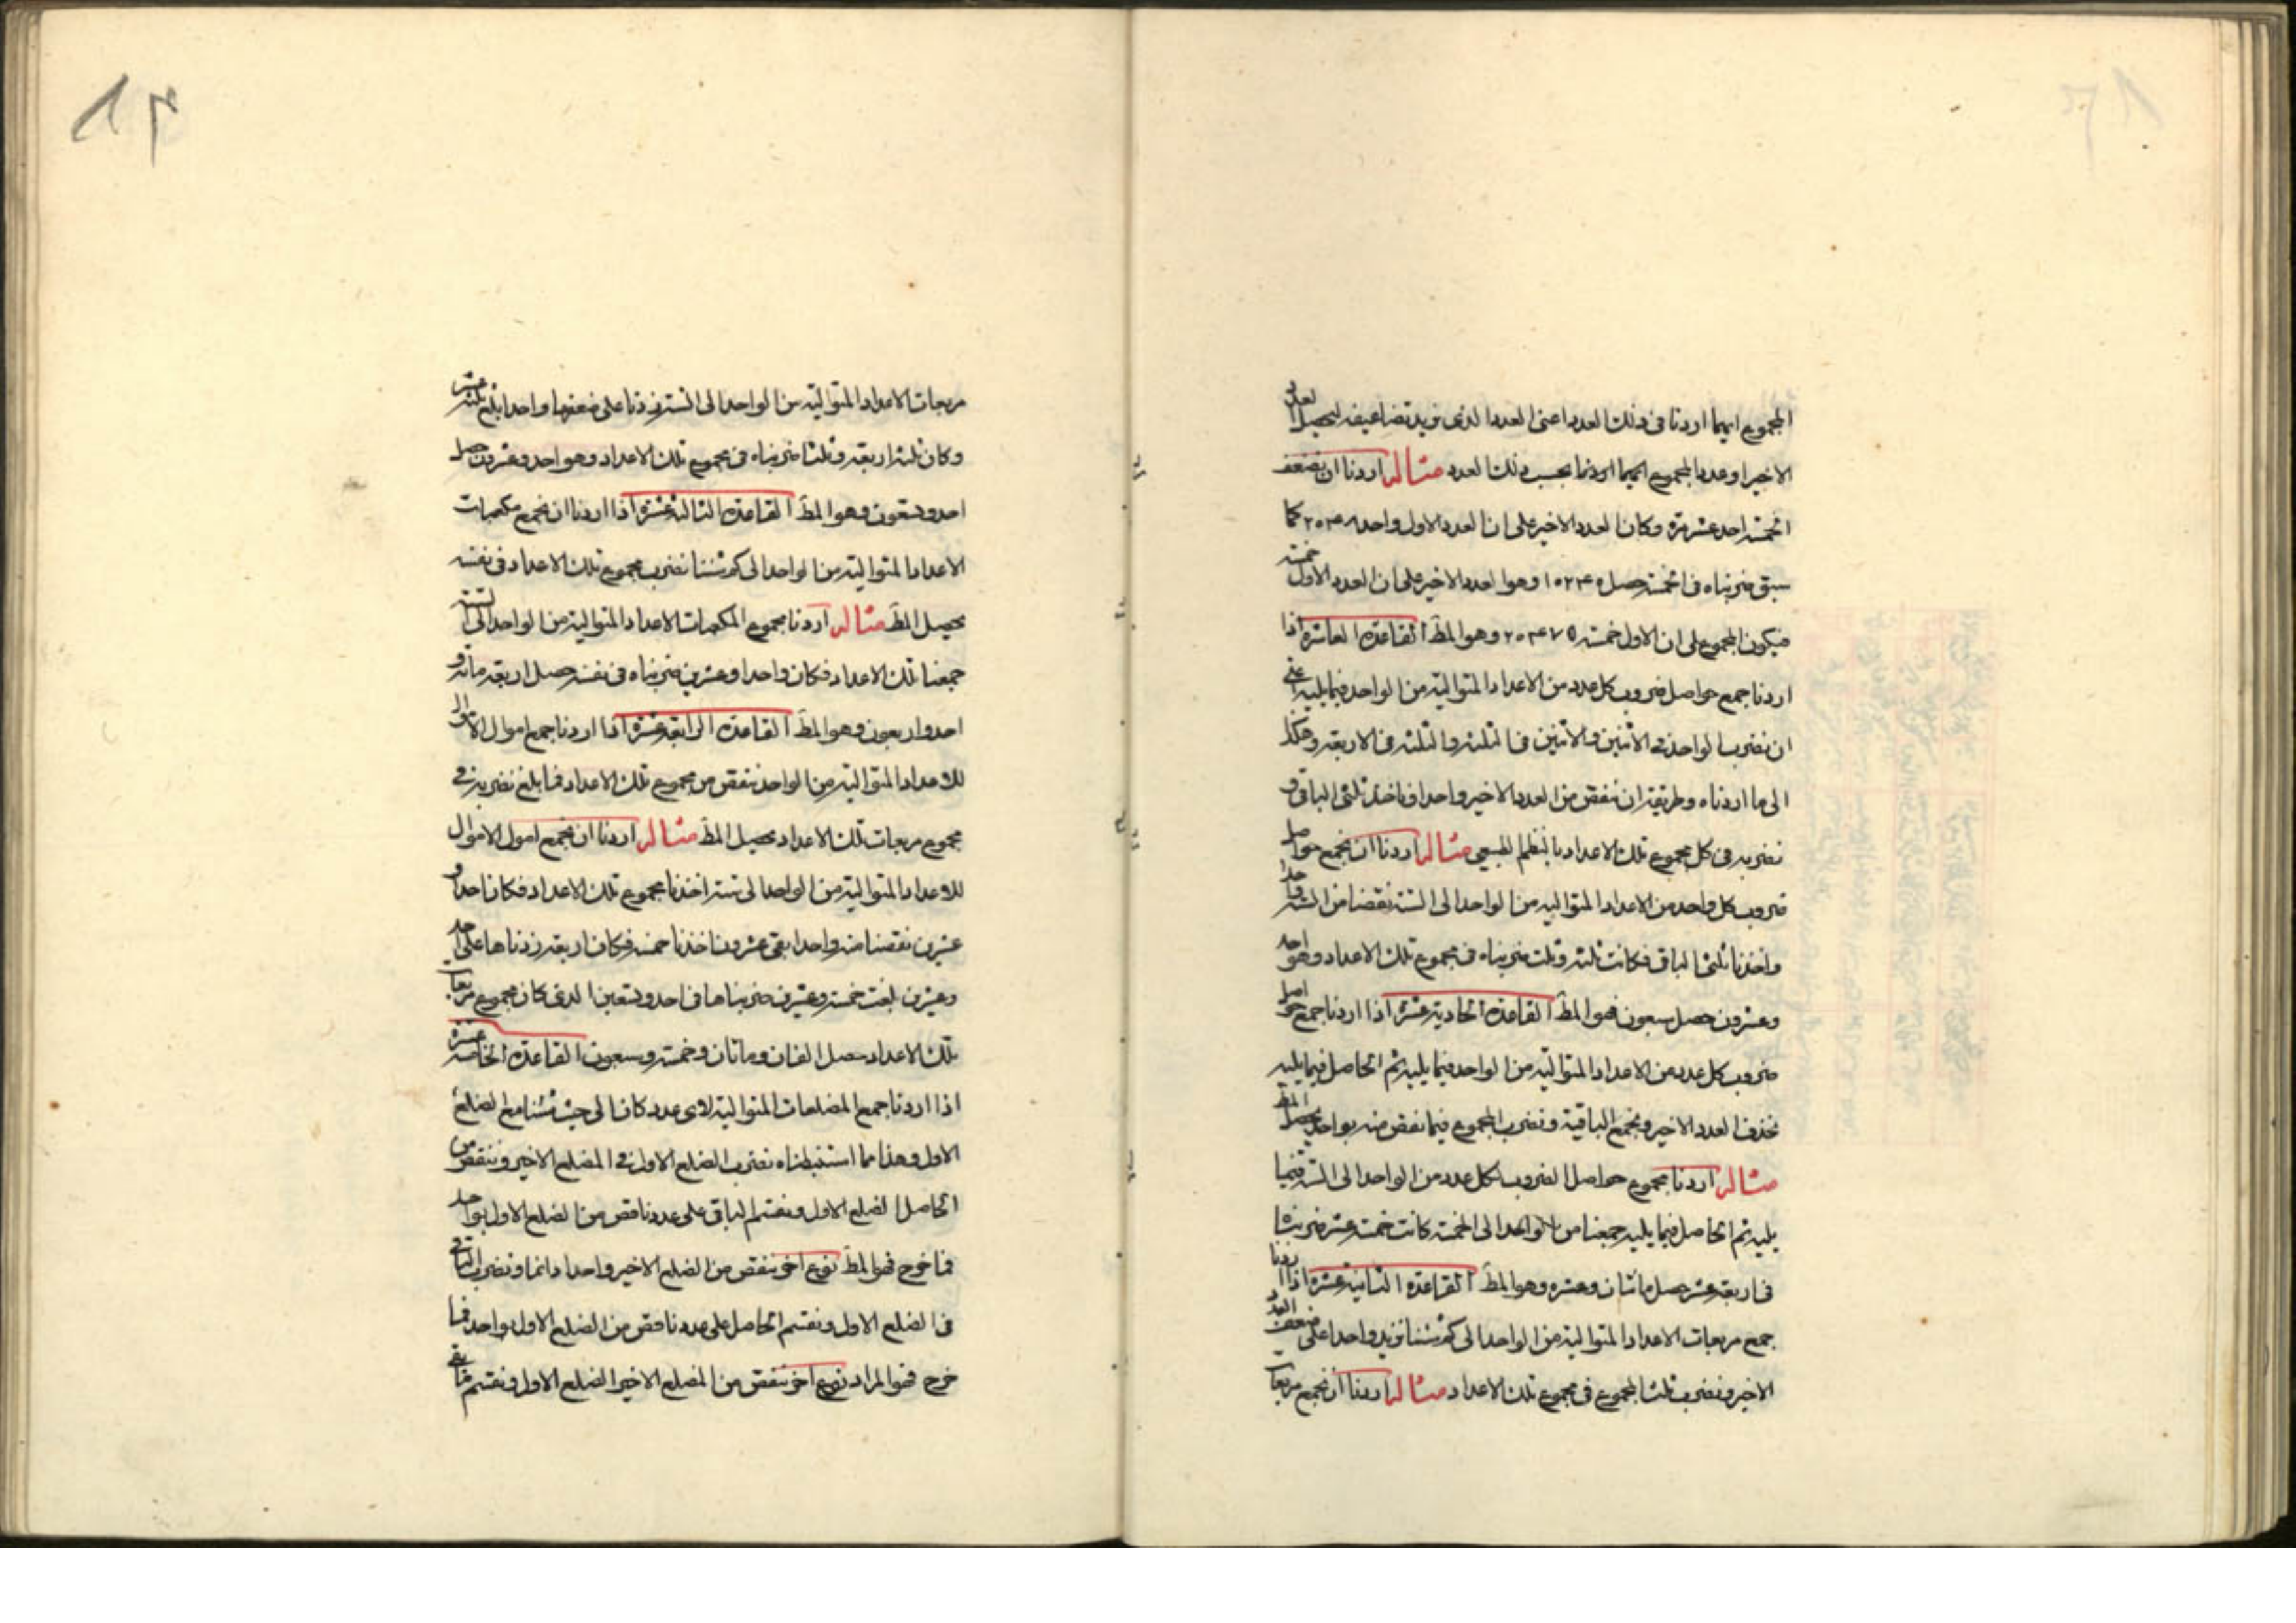 المجموع ايهما اردنا فى ذلك العدد اعنى العدد الذى نريد تضاعيفه ليحصل العدد
الاخير او عدد المجموع ايهما اردنا بحسب ذلك العدد مثاله اردنا ان نضعف
الخمسة احد عشر مرة وكان العدد الاخير على ان العدد الاول واحد كما
سبق ضربناه فى الخمسة حصل وهو العدد الاخير على ان العدد الاول خمسة
فيكون المجموع على ان الاول خمسة وهو المط القاعدة العاشرة اذا
اردنا جمع حواصل ضروب كل عدد من الاعداد المتوالية من الواحد فيما يليه
ان نضرب الواحد فى الاثنين والاثنين فى الثلثة والثلثة فى الاربعة وهكذا
الى ما اردناه وطريقته ان ننقص من العدد الاخير واحدا وناخذ ثلثى الباقى و
نضربه فى كل مجموع تلك الاعداد بالنظم الطبيعى مثاله اردنا ان نجمع حواصل
ضروب كل واحد من الاعداد المتوالية من الواحد الى الستة نقصنا من الستة واحدا
واخذنا ثلثى الباقى فكانت ثلثة وثلث ضربناه فى مجموع تلك الاعداد وهو احد
وعشرون حصل سبعون فهو المط القاعدة الحادية عشرة اذا اردنا جمع حواصل
ضروب كل عدد من الاعداد المتوالية من الواحد فيما يليه ثم الحاصل فيما يليه
نحذف العدد الاخير ونجمع الباقية ونضرب المجموع فيما نقص منه بواحد يحصل المط
مثاله اردنا مجموع حواصل الضروب لكل عدد من الواحد الى الستة فيما
يليه ثم الحاصل فيما يليه جمعنا من الواحد الى الخمسة كانت خمسة عشر ضربناها
فى اربعة عشر حصل مائتان وعشرة وهو المط القاعدة الثانية عشرة اذا اردنا
جمع مربعات الاعداد المتوالية من الواحد الى كم شئنا نزيد واحدا على ضعف العدد
الاخير ونضرب ثلث المجموع فى مجموع تلك الاعداد مثاله اردنا ان نجمع مربعات
١٦
مربعات الاعداد المتوالية من الواحد الى الستة زدنا على ضعفها واحدا بلغ ثلثة عشر
وكان ثلثه اربعة وثلثا ضربناه فى مجموع تلك الاعداد وهو احد وعشرون حصل
احد وتسعون وهو المط القاعدة الثالثة عشرة اذا اردنا ان نجمع مكعبات
الاعداد المتوالية من الواحد الى كم شئنا نضرب مجموع تلك الاعداد فى نفسه
يحصل المط مثاله اردنا مجموع المكعبات الاعداد المتوالية من الواحد الى الستة
جمعنا تلك الاعداد فكان واحدا وعشرين ضربناه فى نفسه حصل اربعة مائة و
احد واربعون وهو المط القاعدة الرابعة عشرة اذا اردنا جمع اموال الاموال
للاعداد المتوالية من الواحد ننقص من مجموع تلك الاعداد فما بلغ نضربه فى
مجموع مربعات تلك الاعداد يحصل المط مثاله اردنا ان نجمع اموال الاموال
للاعداد المتوالية من الواحد الى ستة اخذنا مجموع تلك الاعداد فكان احدا و
عشرين نقصنا منه واحدا بقى عشرون اخذنا خمسه فكان اربعة زدناها على احد
وعشرين بلغت خمسة وعشرين ضربناها فى احد وتسعين الذى كان مجموع مربعات
تلك الاعداد حصل الفان ومائتان وخمسة وسبعون القاعدة الخامسة عشرة
اذا اردنا جمع المضلعات المتوالية لاى عدد كان الى حيث شئنا مع الضلع
الاول وهذا مما استنبطناه نضرب الضلع الاول فى المضلع الاخير وننقص من
الحاصل الضلع الاول ونقسم الباقى على عدد ناقص من الضلع الاول بواحد
فما خرج فهو المط نوع اخر ننقص من الضلع الاخير واحدا دائما ونضرب الباقى
فى الضلع الاول ونقسم الحاصل على عدد ناقص من الضلع الاول بواحد فما
خرج فهو المراد نوع اخر ننقص من المضلع الاخير الضلع الاول ونقسم ما بقى